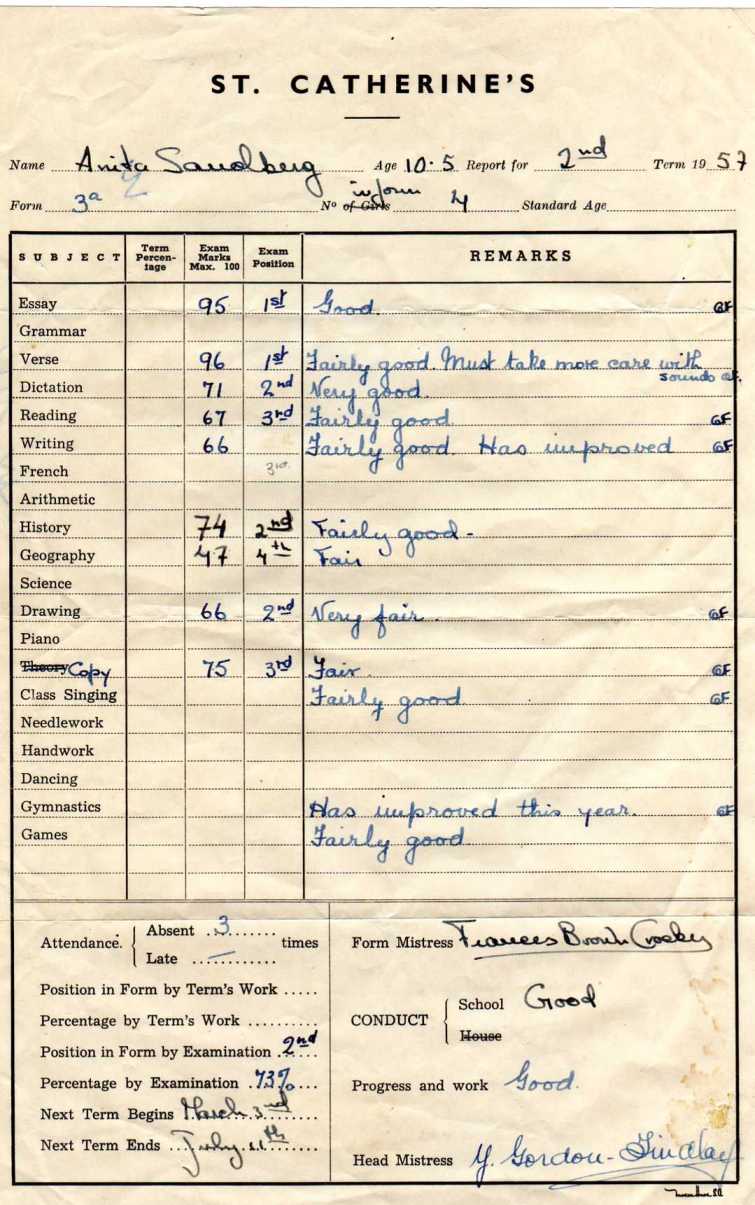 ST. CATHERINE'S
Name Anita Sandberg Age 10.5 Report for 2nd Term 1957
Form 3a No of Girls in form 4 Standard Age
SUBJECT Term Percen-tage Exam Marks Max. 100 Exam Position REMARKS
Essay 95 1st Good. GF
Grammar
Verse 96 1st Fairly good. Must take more care with
sounds GF.
Dictation 71 2nd Very good.
Reading 67 3rd Fairly good GF
Writing 66 Fairly good. Has improved GF
French 3rd
Arithmetic
History 74 2nd Fairly good-
Geography 47 4th Fair
Science
Drawing 66 2nd Very fair. GF
Piano
Theory Copy 75 3rd Fair. GF
Class Singing Fairly good GF
Needlework
Handwork
Dancing
Gymnastics Has improved this year. GF
Games Fairly good
Attendance. Absent 3 times
Late —
Position in Form by Term's Work
Percentage by Term's Work
Position in Form by Examination 2nd
Percentage by Examination 73%
Next Term Begins March 3rd
Next Term Ends July 11th
Form Mistress Frances Brown Crosby
CONDUCT School Good
House
Progress and work Good.
Head Mistress Y. Gordon-Findlay